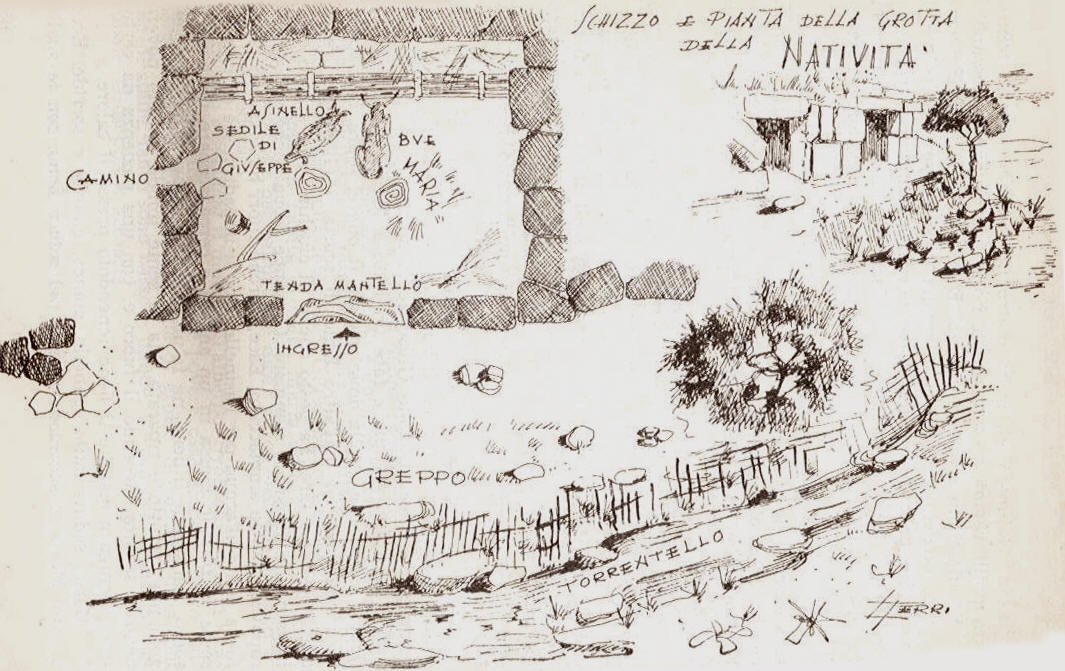 SCHIZZO E PIANTA DELLA GROTTA
DELLA NATIVITA'
ASINELLO
SEDILE
DI
GIUSEPPE
BUE
MARIA
CAMINO
TENDA MANTELLO
INGRESSO
GREPPO
TORRENTELLO
FERRI